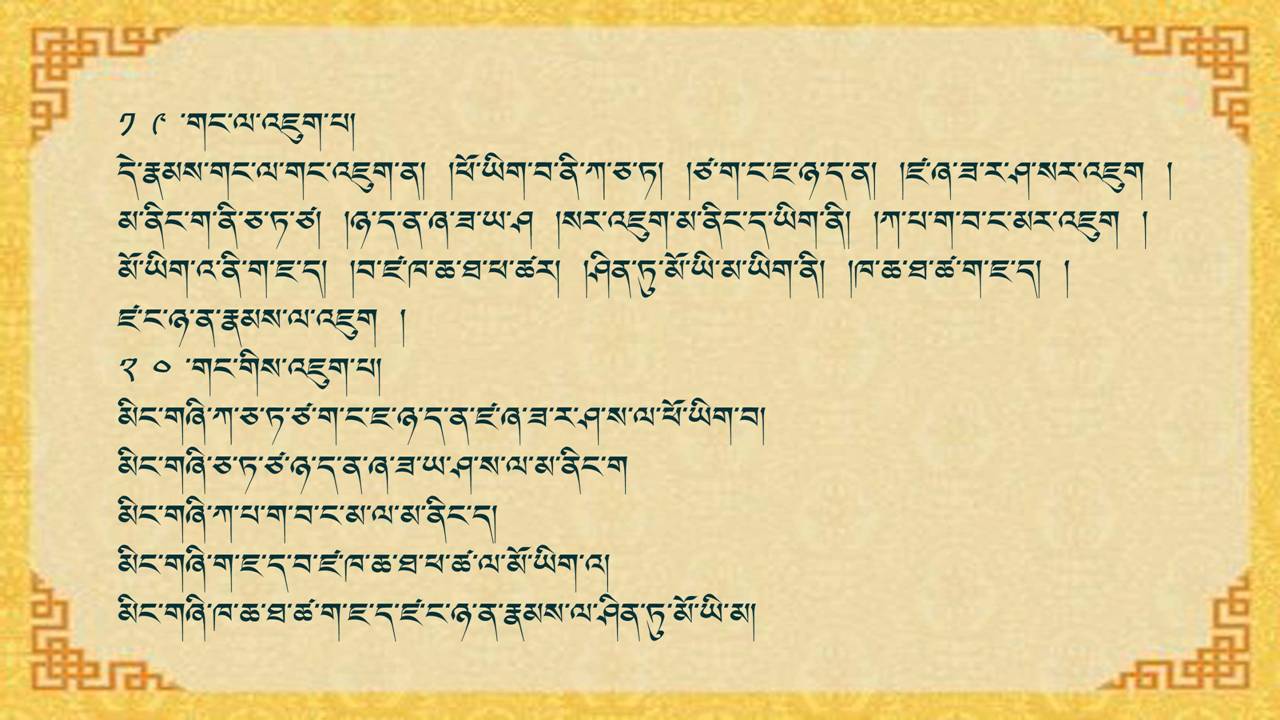 ༡ ༩ ་གང་ལ་འཇུག་པ།
དེ་རྣམས་གང་ལ་གང་འཇུག་ན། །ཕོ་ཡིག་བ་ནི་ཀ་ཅ་ཏ། །ཙ་ག་ང་ཇ་ཉ་ད་ན། །ཛ་ཞ་ཟ་ར་ཤ་སར་འཇུག །
མ་ནིང་ག་ནི་ཅ་ཏ་ཙ། །ཉ་ད་ན་ཞ་ཟ་ཡ་ཤ །སར་འཇུག་མ་ནིང་ད་ཡིག་ནི། །ཀ་པ་ག་བ་ང་མར་འཇུག །
མོ་ཡིག་འ་ནི་ག་ཇ་ད། །བ་ཛ་ཁ་ཆ་ཐ་ཕ་ཚར། །ཤིན་ཏུ་མོ་ཡི་མ་ཡིག་ནི། །ཁ་ཆ་ཐ་ཚ་ག་ཇ་ད། །
ཛ་ང་ཉ་ན་རྣམས་ལ་འཇུག །
༢ ༠ ་གང་གིས་འཇུག་པ།
མིང་གཞི་ཀ་ཅ་ཏ་ཙ་ག་ང་ཇ་ཉ་ད་ན་ཛ་ཞ་ཟ་ར་ཤ་ས་ལ་ཕོ་ཡིག་བ།
མིང་གཞི་ཅ་ཏ་ཙ་ཉ་ད་ན་ཞ་ཟ་ཡ་ཤ་ས་ལ་མ་ནིང་ག
མིང་གཞི་ཀ་པ་ག་བ་ང་མ་ལ་མ་ནིང་ད།
མིང་གཞི་ག་ཇ་ད་བ་ཛ་ཁ་ཆ་ཐ་ཕ་ཚ་ལ་མོ་ཡིག་འ།
མིང་གཞི་ཁ་ཆ་ཐ་ཚ་ག་ཇ་ད་ཛ་ང་ཉ་ན་རྣམས་ལ་ཤིན་ཏུ་མོ་ཡི་མ།